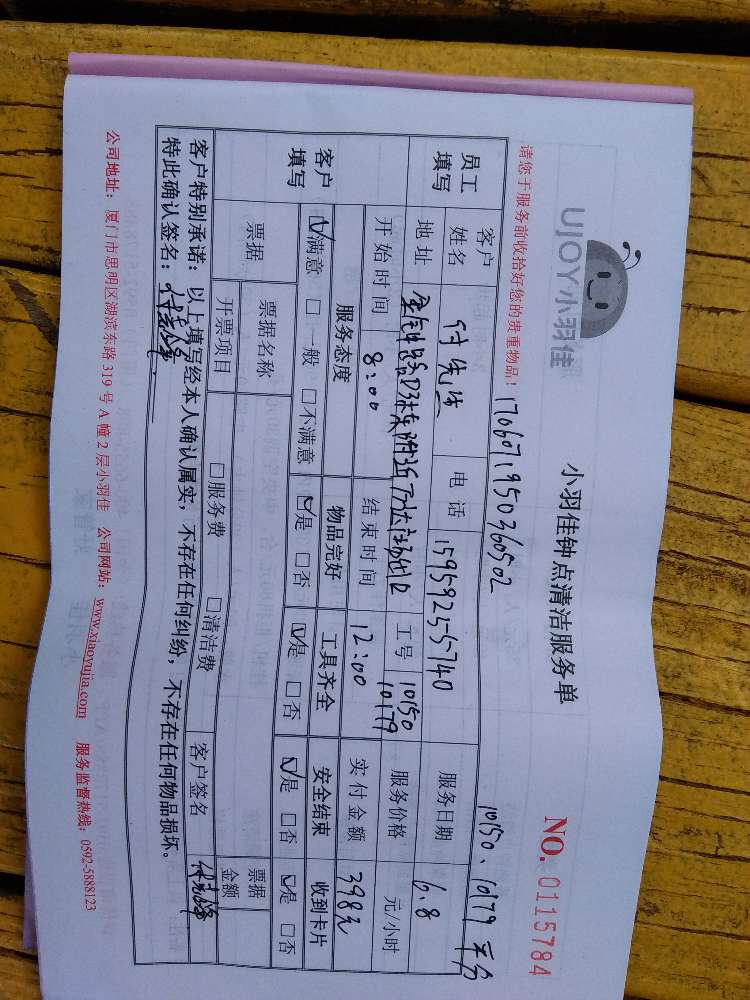 UJOY小羽佳
小羽佳钟点清洁服务单
NO. 0115784
请您于服务前收拾好您的贵重物品！
1706071950360502
10150、10179 平台
员工填写
客户姓名 付先生 电话 15959255740 服务日期 6.8
地址 工号 10150 10179 服务价格 元/小时
开始时间 8:00 结束时间 12:00 实付金额 398元
客户填写
服务态度 物品完好 工具齐全 安全结束 收到卡片
☑满意 □一般 □不满意 ☑是 □否 ☑是 □否 ☑是 □否 ☑是 □否
票据 票据名称 票据金额
开票项目 □服务费 □清洁费 客户签名
客户特别承诺：以上填写经本人确认属实，不存在任何纠纷，不存在任何物品损坏。
特此确认签名：
公司地址：厦门市思明区湖滨东路319号A幢2层小羽佳 公司网站：www.xiaoyujia.com 服务监督热线：0592-5888123